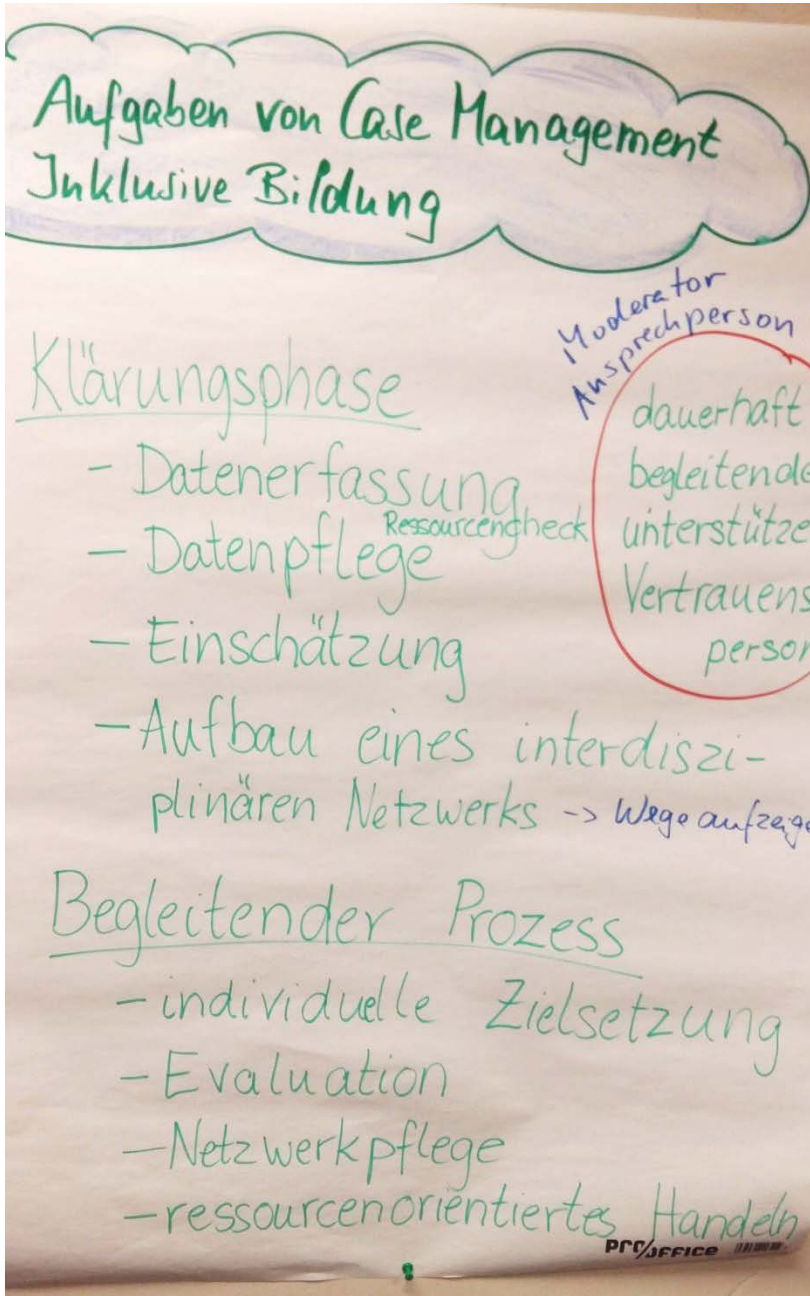 Aufgaben von Case Management
Inklusive Bildung
Moderator
Ansprechperson
dauerhaft
begleitende
unterstütze
Vertrauens
person
Klärungsphase
- Datenerfassung
Ressourcencheck
- Datenpflege
- Einschätzung
- Aufbau eines interdiszi-
plinären Netzwerks -> Wege aufzeige
Begleitender Prozess
- individuelle Zielsetzung
- Evaluation
- Netzwerkpflege
- ressourcenorientiertes Handeln
pro/office